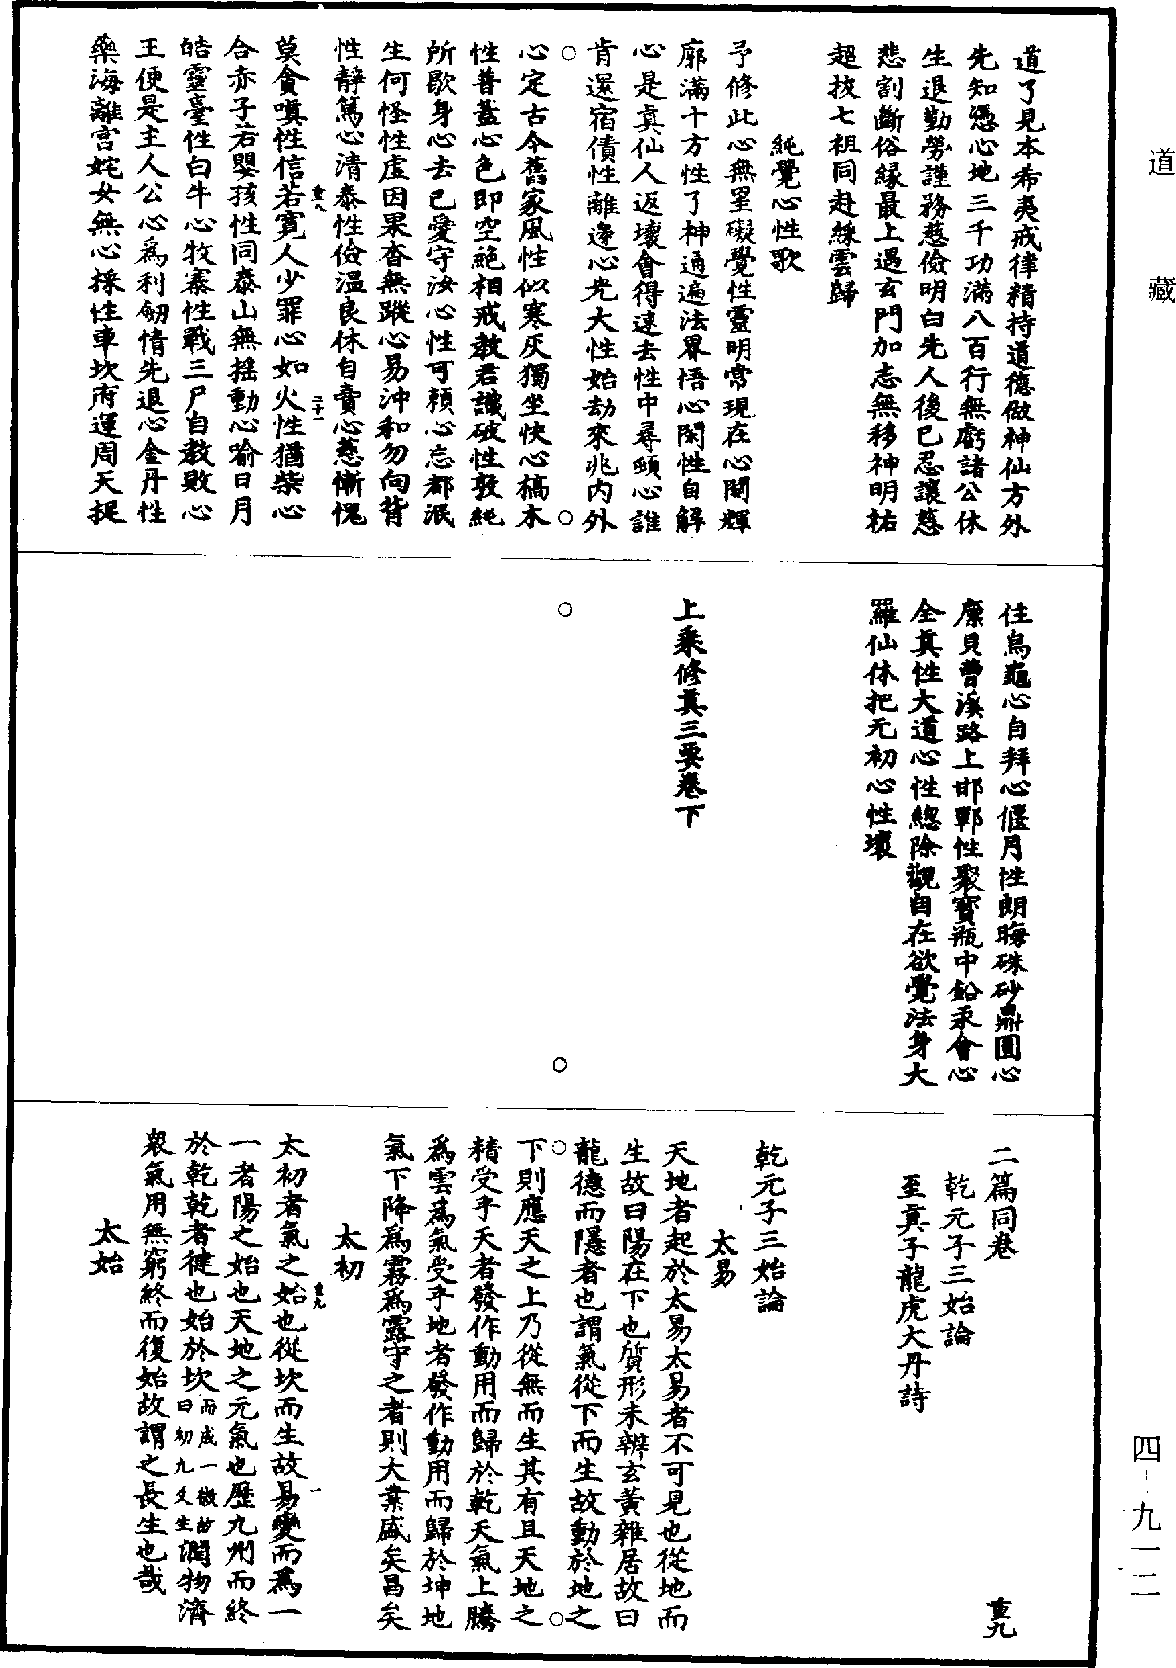 道藏
道了見本希夷戒律精持道德做神仙方外
先知憑心地三千功滿八百行無虧諸公休
生退勤勞謹務慈儉明白先人後己忍讓慈
悲割斷俗緣最上遇玄門加志無移神明祐
超拔七祖同赴綵雲歸
純覺心性歌
予修此心無罣礙覺性靈明常現在心開輝
廓滿十方性了神通遍法界悟心閑性自解
心是真仙人返壞會得速去性中尋頤心誰
肯還宿債性離邊心光大性始劫來兆內外
心定古今舊家風性似寒灰獨坐快心槁木
性普蓋心色即空絕相戒教君識破性敦純
所歇身心去已愛守汝心性可賴心忘都泯
生何怪性虛因果杳無蹤心易沖和勿向背
性靜篤心清泰性儉溫良休自責心慈慚愧
莫貪嗔性信若寬人少罪心如火性猶柴心
合赤子若嬰孩性同泰山無搖動心喻日月
皓靈臺性白牛心牧寨性戰三尸自教敗心
王便是主人公心為利劒情先退心金丹性
藥海離宮姹女無心採性車坎府運周天捉
重八
二十一
住烏龜心自拜心偃月性朗晦硃砂鼎圓心
廉貝曹溪路上邯鄲性聚寶瓶中鉛汞會心
全真性大道心性總除觀自在欲覺法身大
羅仙休把元初心性壞
上乘修真三要卷下
二篇同卷
重九
乾元子三始論
至真子龍虎大丹詩
乾元子三始論
太易
天地者起於太易太易者不可見也從地而
生故曰陽在下也質形未辨玄黃雜居故曰
龍德而隱者也謂氣從下而生故動於地之
下則應天之上乃從無而生其有且天地之
精受乎天者發作動用而歸於乾天氣上騰
為雲為氣受乎地者發作動用而歸於坤地
氣下降為霧為露守之者則大業盛矣昌矣
太初
太初者氣之始也從坎而生故易變而為一
一者陽之始也天地之元氣也歷九州而終
於乾乾者健也始於坎而成一徵故曰初九爻生潤物濟
眾氣用無窮終而復始故謂之長生也哉
太始
重九
一
四-九一二